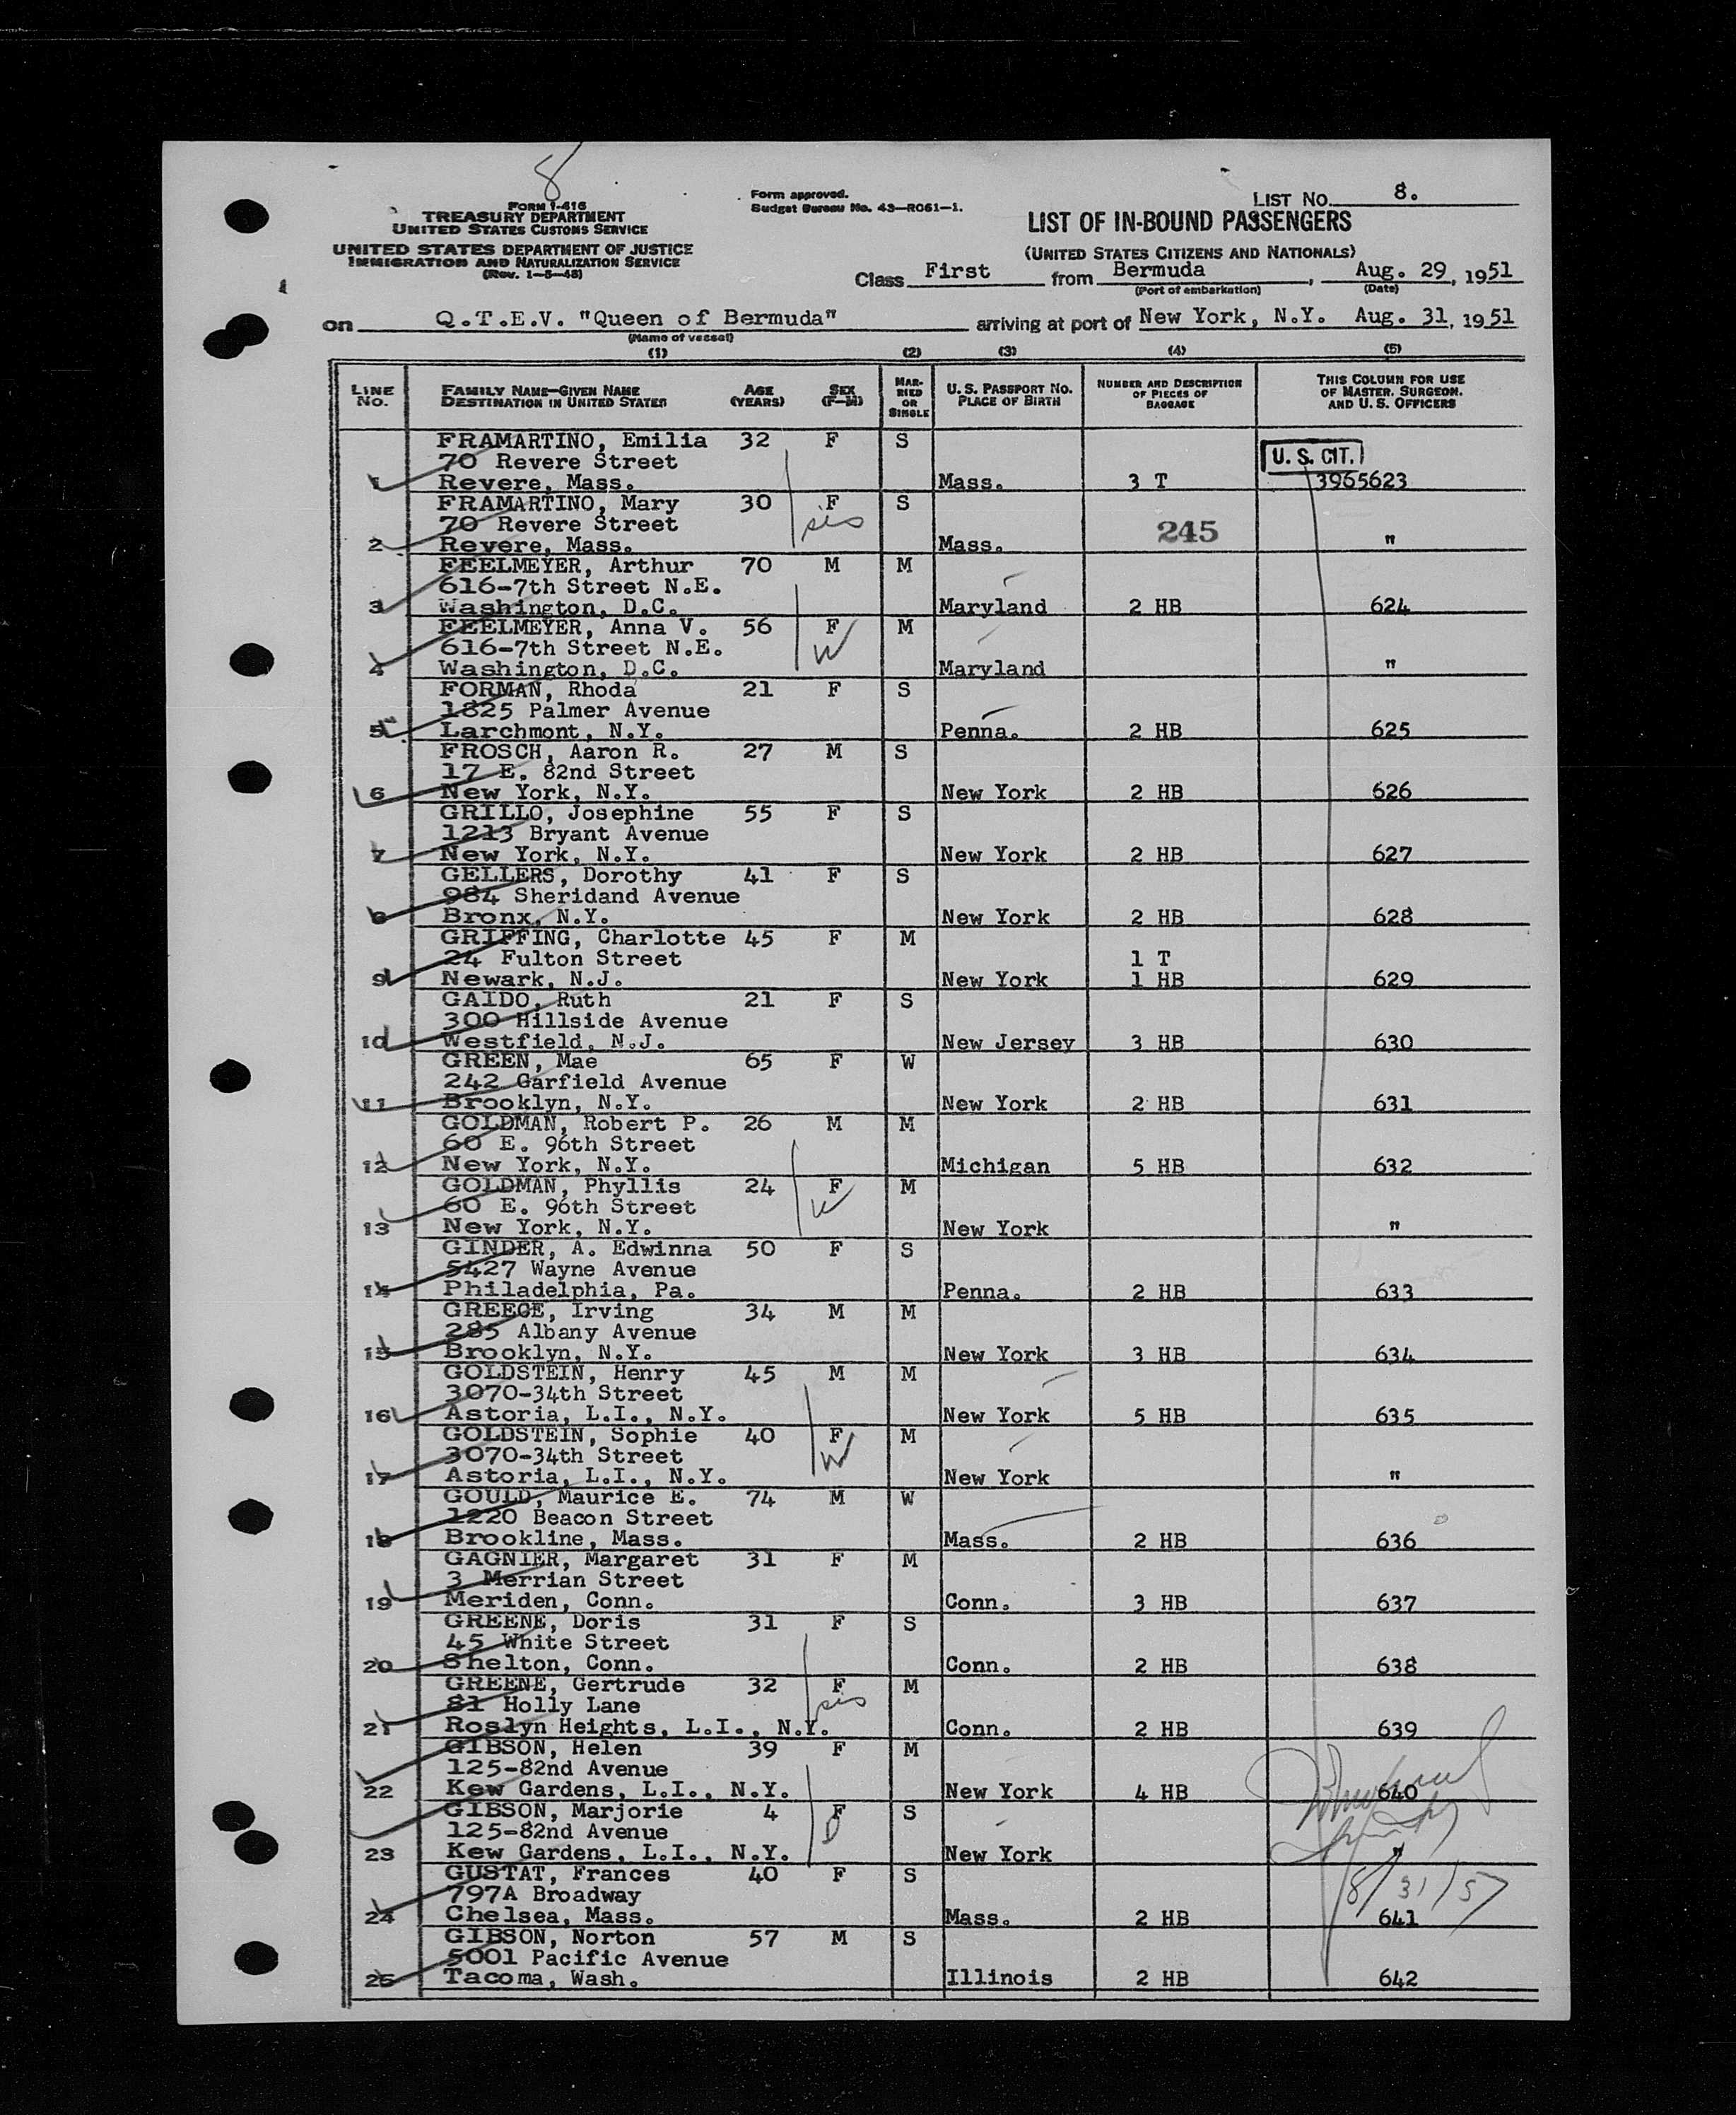 8
FORM I-416
TREASURY DEPARTMENT
UNITED STATES CUSTOMS SERVICE
UNITED STATES DEPARTMENT OF JUSTICE
IMMIGRATION AND NATURALIZATION SERVICE
(Rev. 1-5-48)
Form approved.
Budget Bureau No. 43-R061-1.
LIST NO. 8.
LIST OF IN-BOUND PASSENGERS
(UNITED STATES CITIZENS AND NATIONALS)
Class First from Bermuda, Aug. 29, 1951
(Port of embarkation) (Date)
on Q.T.E.V. "Queen of Bermuda" arriving at port of New York, N.Y. Aug. 31, 1951
(Name of vessel)
(1) (2) (3) (4) (5)
LINE NO. FAMILY NAME—GIVEN NAME DESTINATION IN UNITED STATES AGE (YEARS) SEX (F—M) MARRIED OR SINGLE U.S. PASSPORT NO. PLACE OF BIRTH NUMBER AND DESCRIPTION OF PIECES OF BAGGAGE THIS COLUMN FOR USE OF MASTER, SURGEON, AND U.S. OFFICERS
FRAMARTINO, Emilia 32 F S
70 Revere Street U. S. CIT.
1 Revere, Mass. Mass. 3 T 3965623
FRAMARTINO, Mary 30 F S
70 Revere Street sis 245
2 Revere, Mass. Mass. "
FEELMEYER, Arthur 70 M M
616-7th Street N.E.
3 Washington, D.C. Maryland 2 HB 624
FEELMEYER, Anna V. 56 F M
616-7th Street N.E. W
4 Washington, D.C. Maryland "
FORMAN, Rhoda 21 F S
1825 Palmer Avenue
5 Larchmont, N.Y. Penna. 2 HB 625
FROSCH, Aaron R. 27 M S
17 E. 82nd Street
6 New York, N.Y. New York 2 HB 626
GRILLO, Josephine 55 F S
1213 Bryant Avenue
7 New York, N.Y. New York 2 HB 627
GELLERS, Dorothy 41 F S
984 Sheridand Avenue
8 Bronx, N.Y. New York 2 HB 628
GRIFFING, Charlotte 45 F M
24 Fulton Street 1 T
9 Newark, N.J. New York 1 HB 629
GAIDO, Ruth 21 F S
300 Hillside Avenue
10 Westfield, N.J. New Jersey 3 HB 630
GREEN, Mae 65 F W
242 Garfield Avenue
11 Brooklyn, N.Y. New York 2 HB 631
GOLDMAN, Robert P. 26 M M
60 E. 96th Street
12 New York, N.Y. Michigan 5 HB 632
GOLDMAN, Phyllis 24 F M
60 E. 96th Street W
13 New York, N.Y. New York "
GINDER, A. Edwinna 50 F S
5427 Wayne Avenue
14 Philadelphia, Pa. Penna. 2 HB 633
GREEGE, Irving 34 M M
285 Albany Avenue
15 Brooklyn, N.Y. New York 3 HB 634
GOLDSTEIN, Henry 45 M M
3070-34th Street
16 Astoria, L.I., N.Y. New York 5 HB 635
GOLDSTEIN, Sophie 40 F M
3070-34th Street W
17 Astoria, L.I., N.Y. New York "
GOULD, Maurice E. 74 M W
1220 Beacon Street
18 Brookline, Mass. Mass. 2 HB 636
GAGNIER, Margaret 31 F M
3 Merrian Street
19 Meriden, Conn. Conn. 3 HB 637
GREENE, Doris 31 F S
45 White Street
20 Shelton, Conn. Conn. 2 HB 638
GREENE, Gertrude 32 F M
81 Holly Lane sis
21 Roslyn Heights, L.I., N.Y. Conn. 2 HB 639
GIBSON, Helen 39 F M
125-82nd Avenue
22 Kew Gardens, L.I., N.Y. New York 4 HB 640
GIBSON, Marjorie 4 F S
125-82nd Avenue D
23 Kew Gardens, L.I., N.Y. New York "
GUSTAT, Frances 40 F S
797A Broadway 8/31/51
24 Chelsea, Mass. Mass. 2 HB 641
GIBSON, Norton 57 M S
5001 Pacific Avenue
25 Tacoma, Wash. Illinois 2 HB 642